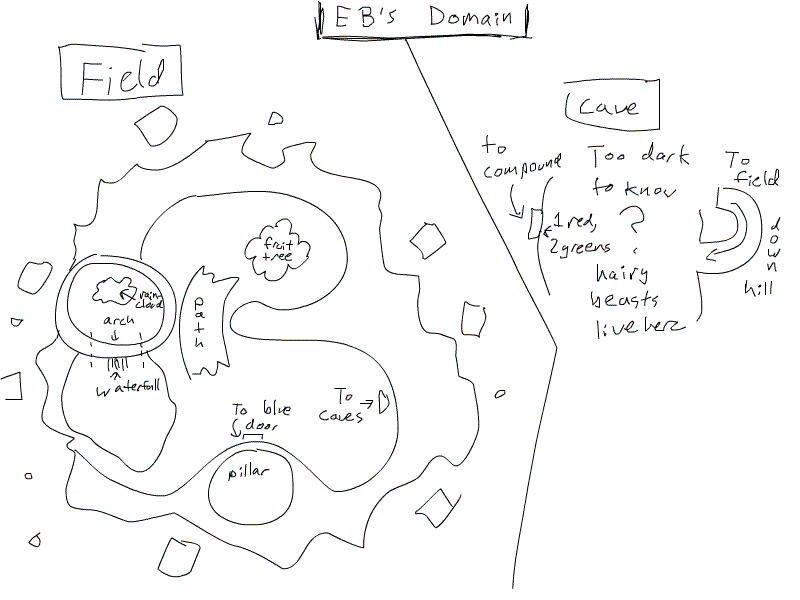 EB's Domain
Field
fruit
tree
rain-
cloud
arch
path
waterfall
To blue
door
pillar
To
caves
cave
to
compound
Too dark
to know
?
1 red,
2 greens
hairy
beasts
live here
To
field
down
hill